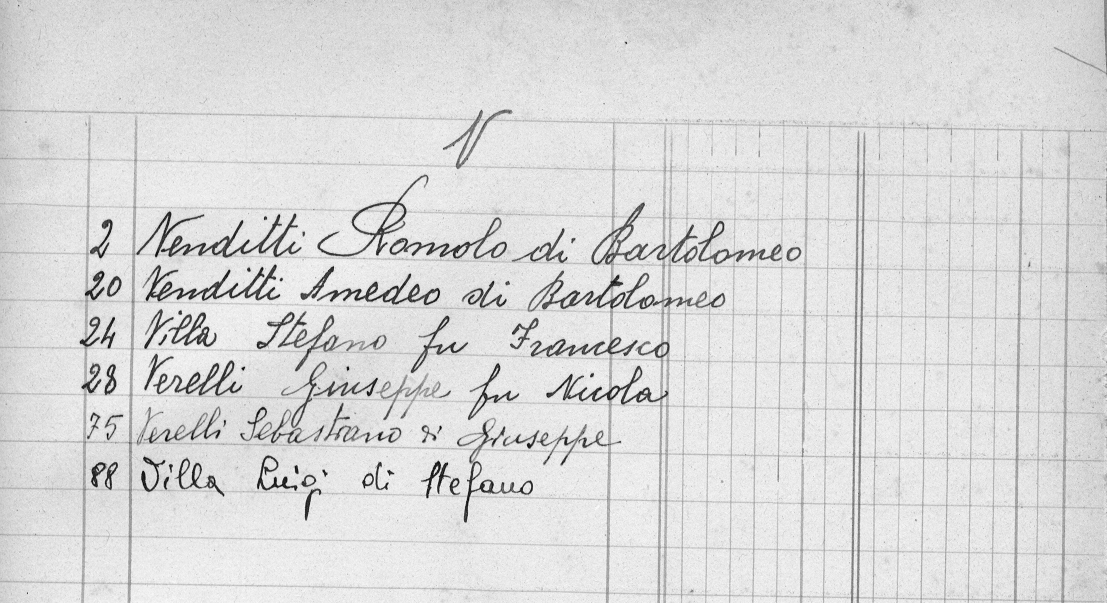 V
2 Venditti Romolo di Bartolomeo
20 Venditti Amedeo di Bartolomeo
24 Villa Stefano fu Francesco
28 Verelli Giuseppe fu Nicola
75 Verelli Sebastiano di Giuseppe
88 Villa Luigi di Stefano